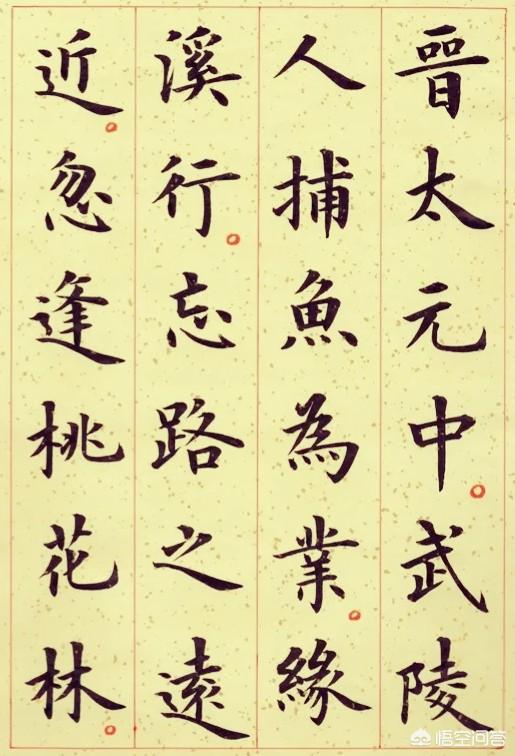 晉太元中。武陵
人捕魚為業。緣
溪行。忘路之遠
近。忽逢桃花林。
悟空问答